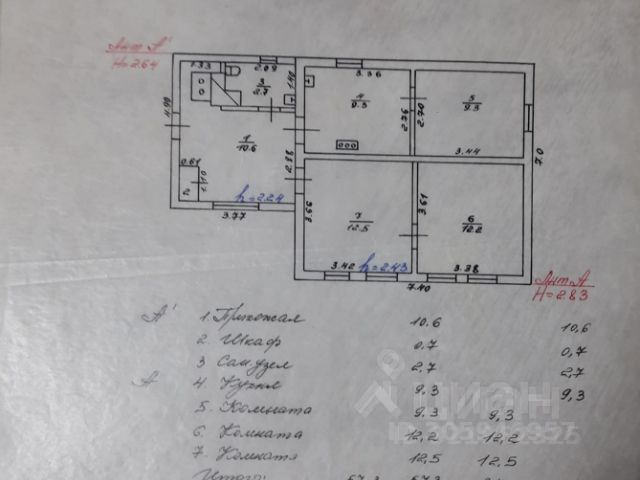 Лит А'
H=2.64
1.33
2.09
3
2.7
1.40
3.36
4
9.3
2.76
2.70
5
9.3
3.44
7.0
4.90
1
10.6
2.98
0.61
1.10
2
h=2.24
3.77
3.63
7
12.5
3.61
6
12.2
3.42
h=2.43
3.38
7.40
Лит А
H=2.83
А' 1. Прихожая 10.6 10,6
2 Шкаф 0.7 0,7
3 Сан узел 2,7 2,7
А 4. Кухня 9,3 9,3
5. Комната 9.3 9,3
6. Комната 12,2 12,2
7. Комната 12,5 12,5
Итого: 57.3 57.3
циан